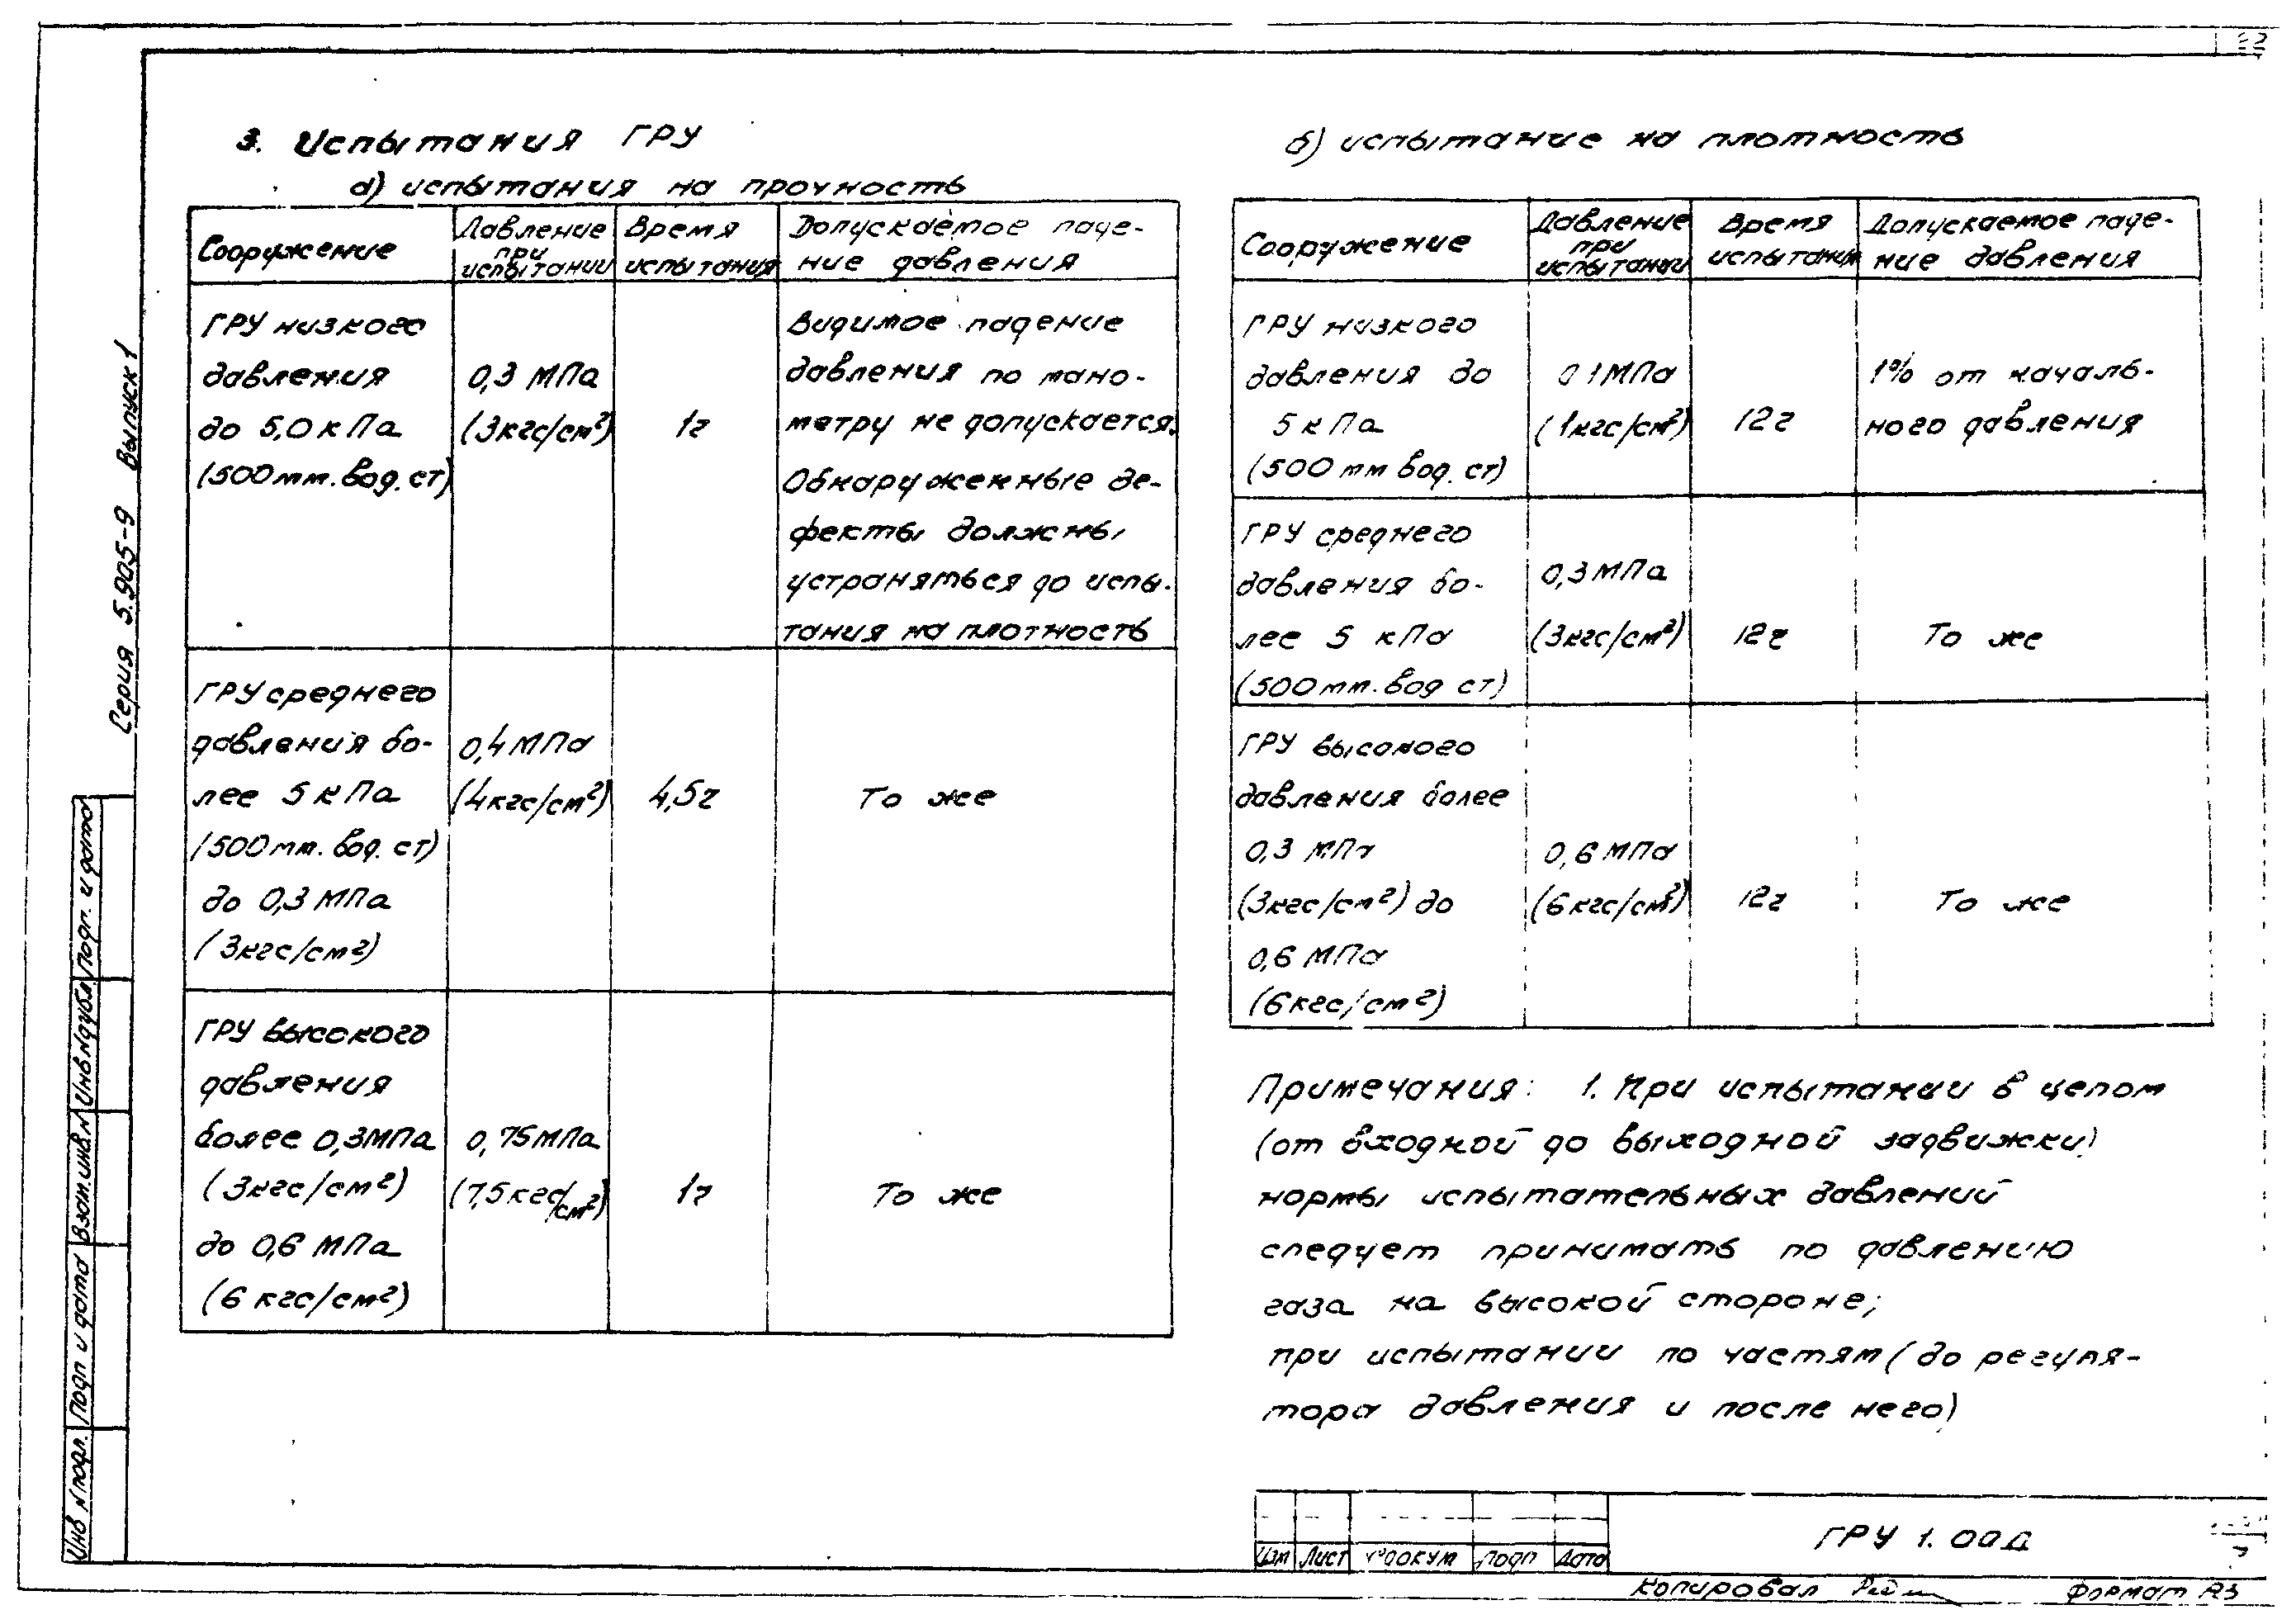 3. Испытания ГРУ
а) испытания на прочность
Сооружение
Давление
при
испытании
Время
испытания
Допускаемое паде-
ние давления
ГРУ низкого
давления
до 5,0 кПа
(500 мм. вод. ст)
0,3 МПа
(3кгс/см²)
1ч
Видимое падение
давления по мано-
метру не допускается.
Обнаруженные де-
фекты должны
устраняться до испы-
тания на плотность
ГРУ среднего
давления бо-
лее 5 кПа
(500 мм. вод. ст)
до 0,3 МПа
(3кгс/см²)
0,4 МПа
(4кгс/см²)
4,5ч
То же
ГРУ высокого
давления
более 0,3МПа
(3кгс/см²)
до 0,6 МПа
(6 кгс/см²)
0,75МПа
(7,5кгс/см²)
1ч
То же
б) испытание на плотность
Сооружение
Давление
при
испытании
Время
испытания
Допускаемое паде-
ние давления
ГРУ низкого
давления до
5 кПа
(500 мм вод. ст)
0 1МПа
(1кгс/см²)
12ч
1% от началь-
ного давления
ГРУ среднего
давления бо-
лее 5 кПа
(500 мм. вод ст)
0,3МПа
(3кгс/см²)
12ч
То же
ГРУ высокого
давления более
0,3 МПа
(3кгс/см²) до
0,6 МПа
(6кгс/см²)
0,6 МПа
(6кгс/см²)
12ч
То же
Примечания: 1. При испытании в целом
(от входной до выходной задвижки)
нормы испытательных давлений
следует принимать по давлению
газа на высокой стороне;
при испытании по частям (до регуля-
тора давления и после него)
Серия 5.905-9 Выпуск 1
Подп. и дата
Инв N дубл
Взам. инв N
Подп и дата
Инв N подл.
Изм Лист № докум Подп Дата
ГРУ 1.00Д
7
Копировал
Формат А3